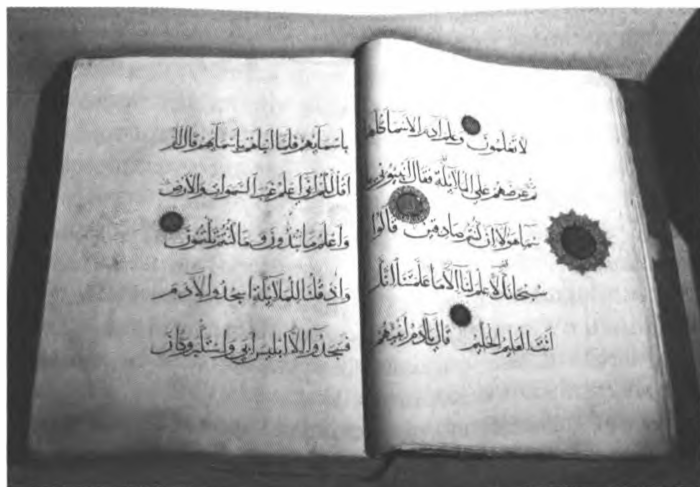 لا تعلمون وعلم ادم الاسماء كلها
ثم عرضهم على الملائكة فقال انبئوني
باسماء هؤلاء ان كنتم صادقين قالوا
سبحانك لا علم لنا الا ما علمتنا انك
انت العليم الحكيم قال يا ادم انبئهم
باسمائهم فلما انباهم باسمائهم قال الم
اقل لكم اني اعلم غيب السموات والارض
واعلم ما تبدون وما كنتم تكتمون
واذ قلنا للملائكة اسجدوا لادم
فسجدوا الا ابليس ابى واستكبر وكان